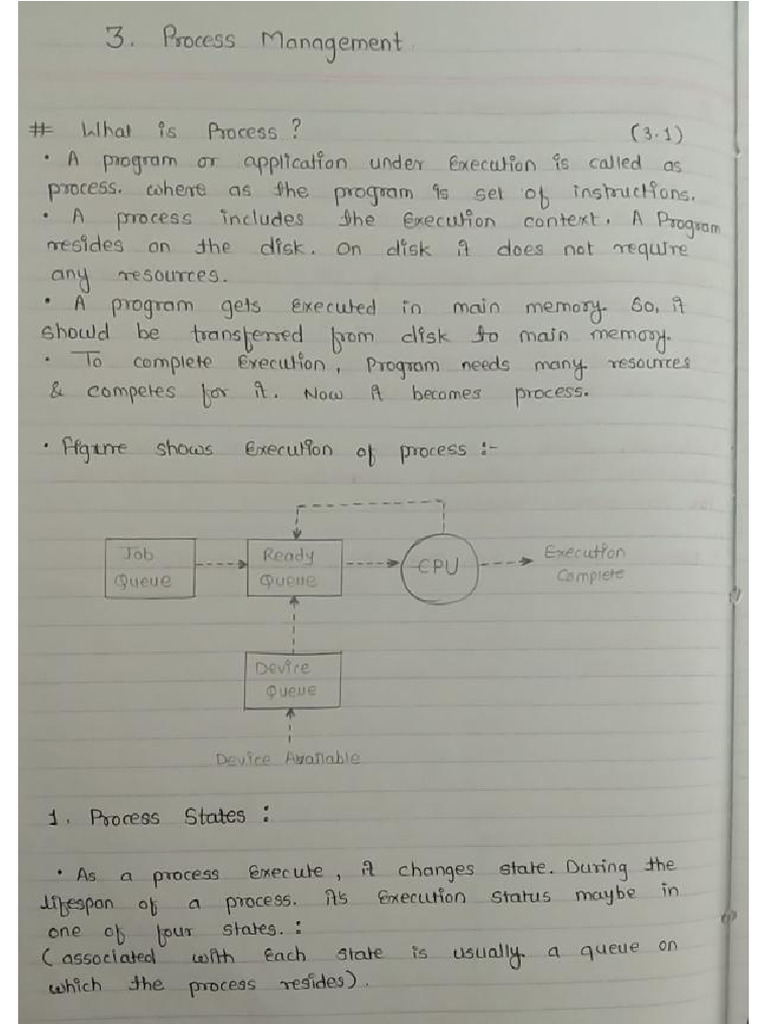 3. Process Management
# What is Process? (3.1)
• A program or application under Execution is called as
process. where as the program is set of instructions.
• A process includes the Execution context. A Program
resides on the disk. On disk it does not require
any resources.
• A program gets Executed in main memory. So, it
should be transferred from disk to main memory.
• To complete Execution, Program needs many resources
& competes for it. Now it becomes process.
• Figure shows Execution of process :-
Job
Queue
Ready
Queue
CPU
Execution
Complete
Device
Queue
Device Available
1. Process States :
• As a process Execute, it changes state. During the
lifespan of a process. its Execution status maybe in
one of four states. :
(associated with Each state is usually a queue on
which the process resides).